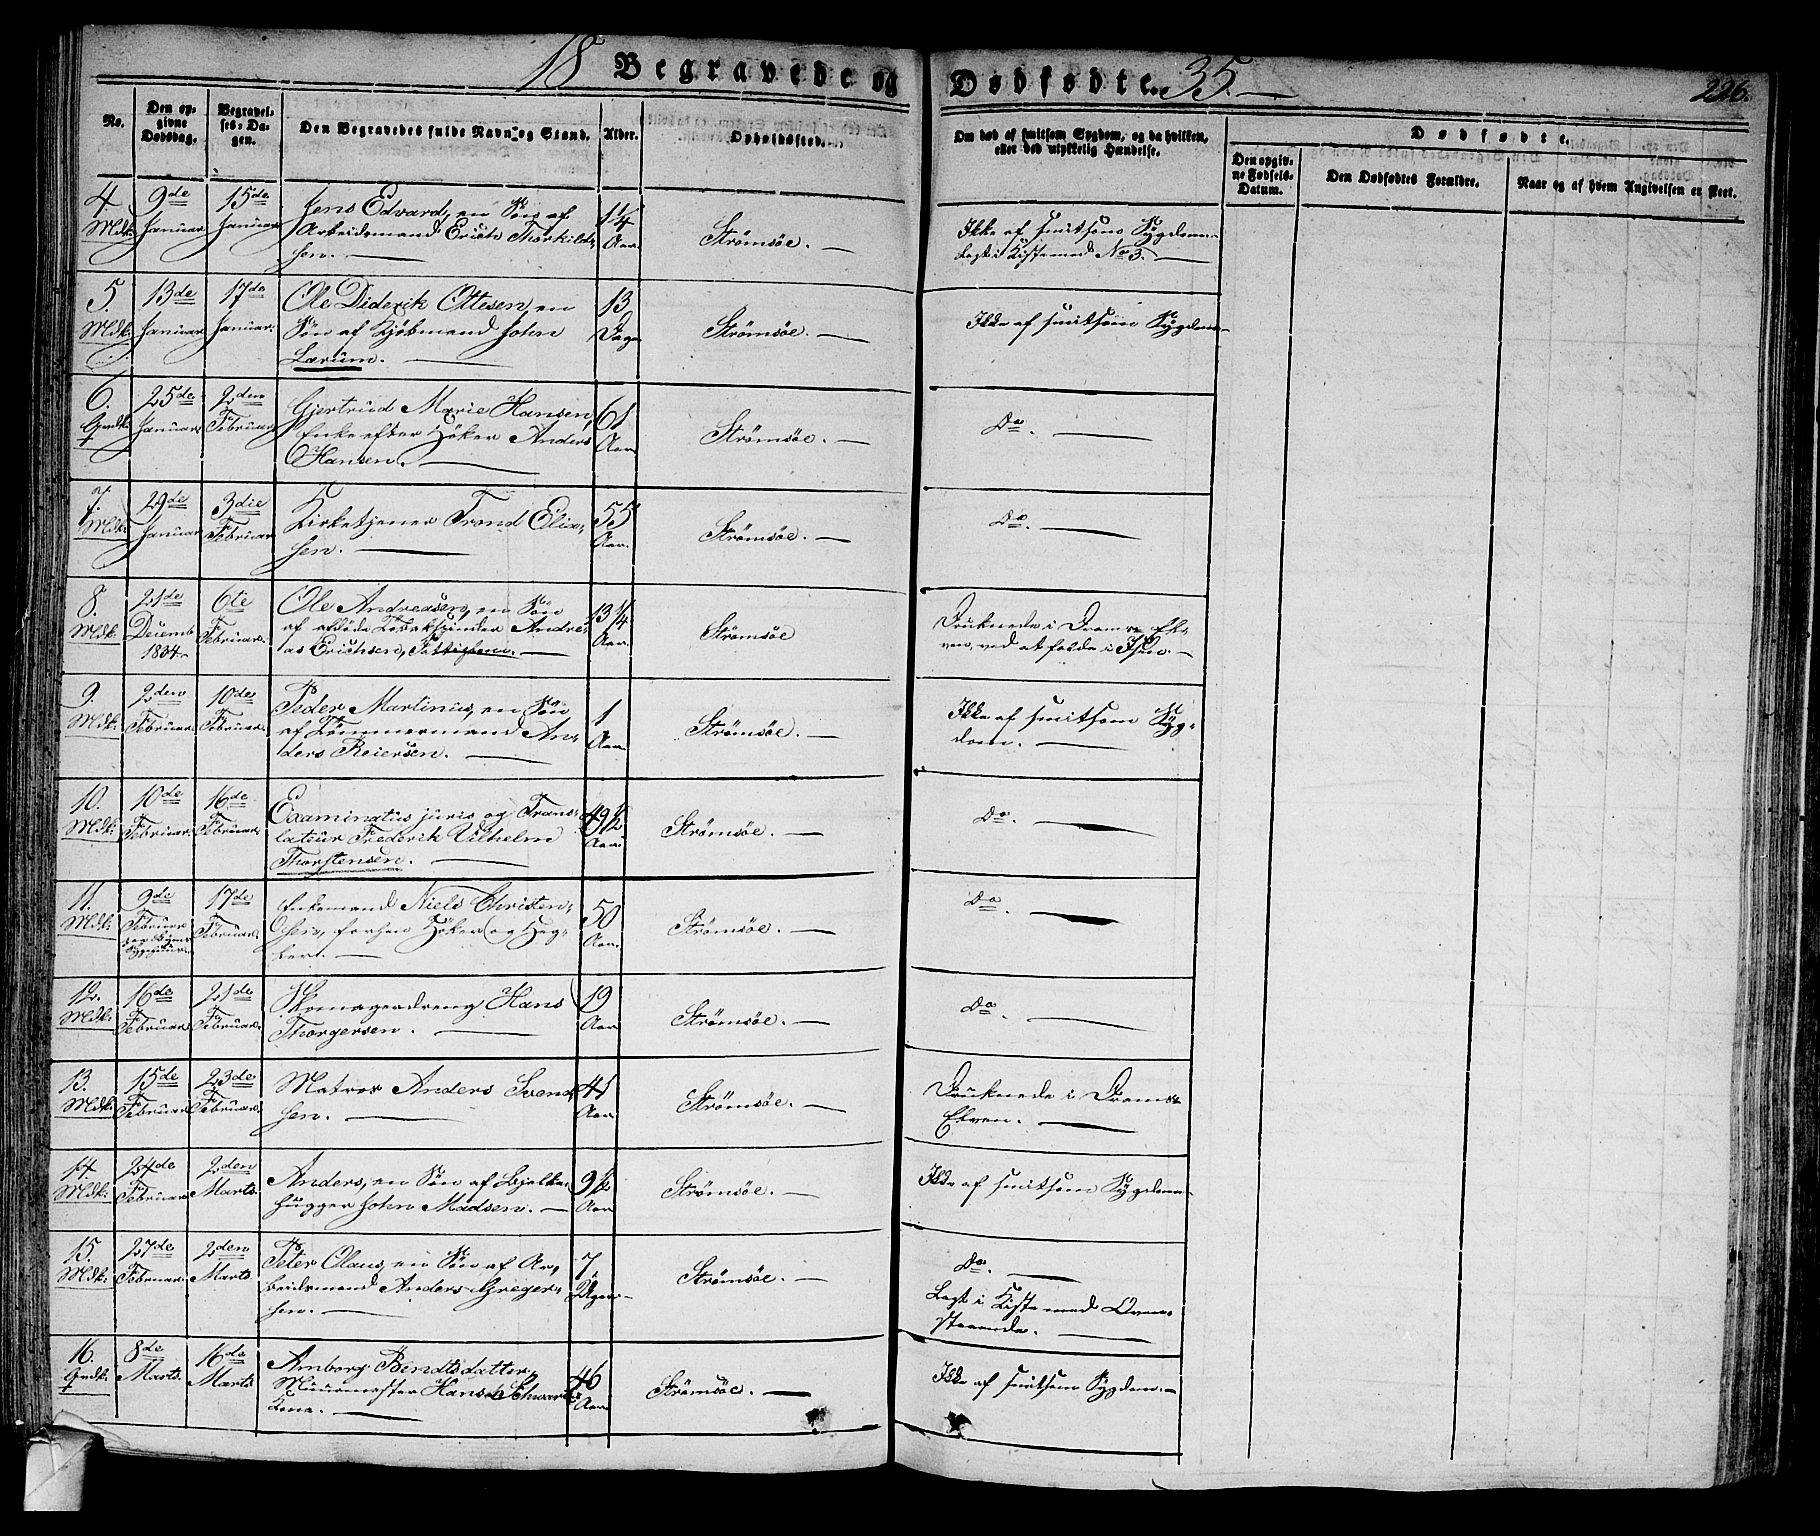 18 Begravede og Dødfødte. 35. 226.
No. Den opgivne Dødsdag. Begravelses-Dagen. Den Begravedes fulde Navn og Stand. Alder. Opholdssted. Om død af smitsom Sygdom, og da hvilken, eller ved ulykkelig Hændelse. Dødfødte.
Den opgivne Fødsels-Datum. Den Dødfødtes Forældre. Naar og af hvem Angivelsen er skeet.
4. 9de 15de Jens Edvard, en Søn af 1¼
Mdk: Januar Januar Arbeidsmand Erich Thorkild- Aar Strømsøe. Ikke af smitsom Sygdom.
sen. Lagt i Kiste med No 3.
5. 13de 17de Ole Diderik Ottesen, en 13
Mdk: Januar Januar. Søn af Kjøbmand John Dage Strømsøe. Ikke af smitsom Sygdom
Lærum.
6. 25de 2den Gjertrud Marie Hansen, 61
Qvdk: Januar Februar Enke efter Høker Anders Aar Strømsøe. Do.
Hansen.
7. 29de 3die Kirketjener Trond Elia- 55
Mdk: Januar Februar sen. Aar. Strømsøe. Do.
8. 21de 6te Ole Andreasen, en Søn 13¼
Mdk. Decemb Februar. af afdøde Tobakspinder Andre- Aar. Strømsøe Druknede i Drams El-
1834. as Erichsen, Fattiglem. ven, ved at falde i Isen.
9. 2den 10de Peder Martinus, en Søn 1
Mdk: Februar Februar. af Tømmermand An- Aar. Strømsøe. Ikke af smitsom Syg-
ders Reiersen. dom.
10. 10de 16de Examinatus juris og Trans- 49½
Mdk: Februar Februar. lateur Frederik Vilhelm Aar. Strømsøe. Do.
Thorstensen.
11. 9de 17de Enkemand Niels Christen- 50
Mdk: Februar Februar. sen, forhen Høker og Aar. Strømsøe. Do.
12. 16de 21de Skomagerdreng Hans 19
Mdk: Februar Februar. Thorgersen. Aar Strømsøe. Do
13. 15de 23de Matros Anders Svend- 41
Mdk: Februar Februar. sen. Aar. Strømsøe. Druknede i Drams-
Elven.
14. 24de 2den Anders, en Søn af Bjelke- 9½
Mdk: Februar Marts. hugger John Madsen. Aar Strømsøe. Ikke af smitsom Sygdom
15. 27de 2den Peter Olaus, en Søn af Ar- 7
Mdk: Februar Marts beidsmand Anders Greger- Uger Strømsøe. Do.
sen. Lagt i Kiste med Oven-
staaende.
16. 8de 16de Amborg Bendtsdatter, 46
Qvdk: Marts Marts Muurmester Hans Schwartz Aar. Strømsøe. Ikke af smitsom Sygdom.
Kone.